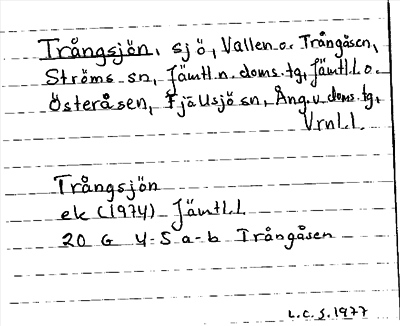 Trångsjön, sjö, Vallen o. Trångåsen,
Ströms sn, Jämtl.n. doms.tg, Jämtl.l. o.
Österåsen, Fjällsjö sn, Ång.v. doms.tg,
Vrnl.l.
Trångsjön
ek (1974) Jämtl.l
20 G 4-5 a-b Trångåsen
L.C.S. 1977